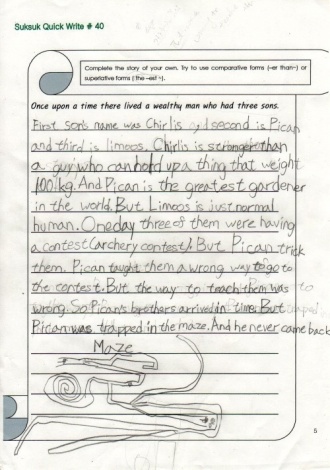 Suksuk Quick Write # 40
Complete the story of your own. Try to use comparative forms (~er than~) or
superlative forms ( the ~est ~).
Once upon a time there lived a wealthy man who had three sons.
First son's name was Chirlis and second is Pican
and third is limoos. Chirlis is stronger than
a guy who can hold up a thing that weight
100kg. And Pican is the greatest gardener
in the world. But Limoos is just normal
human. One day three of them were having
a contest (archery contest). But Pican trick
them. Pican taught them a wrong way to go to
the contest. But the way to teach them was
wrong. So Pican's brothers arrived in time. But
Pican was trapped in the maze. And he never came back
Maze
5